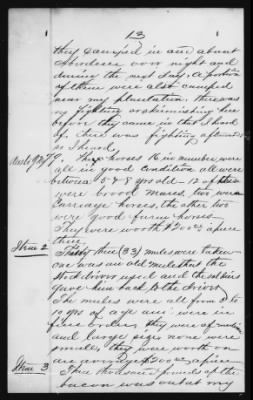 13
they camped in and about
Aberdeen over night and
during the next day, a portion
of them were also camped
near my plantation. there was
no fighting or skirmishing here
before they came in that I heard
of, there was fighting afterwards
The horses 16 in number were
all in good condition all were
between 5 & 8 yrs old 12 of them
were brood mares two were
Carriage horses, the other two
were good farm horses
They were worth $200.00 apiece
there
Item 2
Thirty three (33) mules were taken
one was an old mule that the
stock drivers used and the soldiers
gave him back to the driver
The mules were all from 3 to
10 yrs of age and were in
fine order, they were of medium
and large size none were
small they were worth on
an average $200.00 apiece
Item 3
Five thousand pounds of the
bacon was out at my